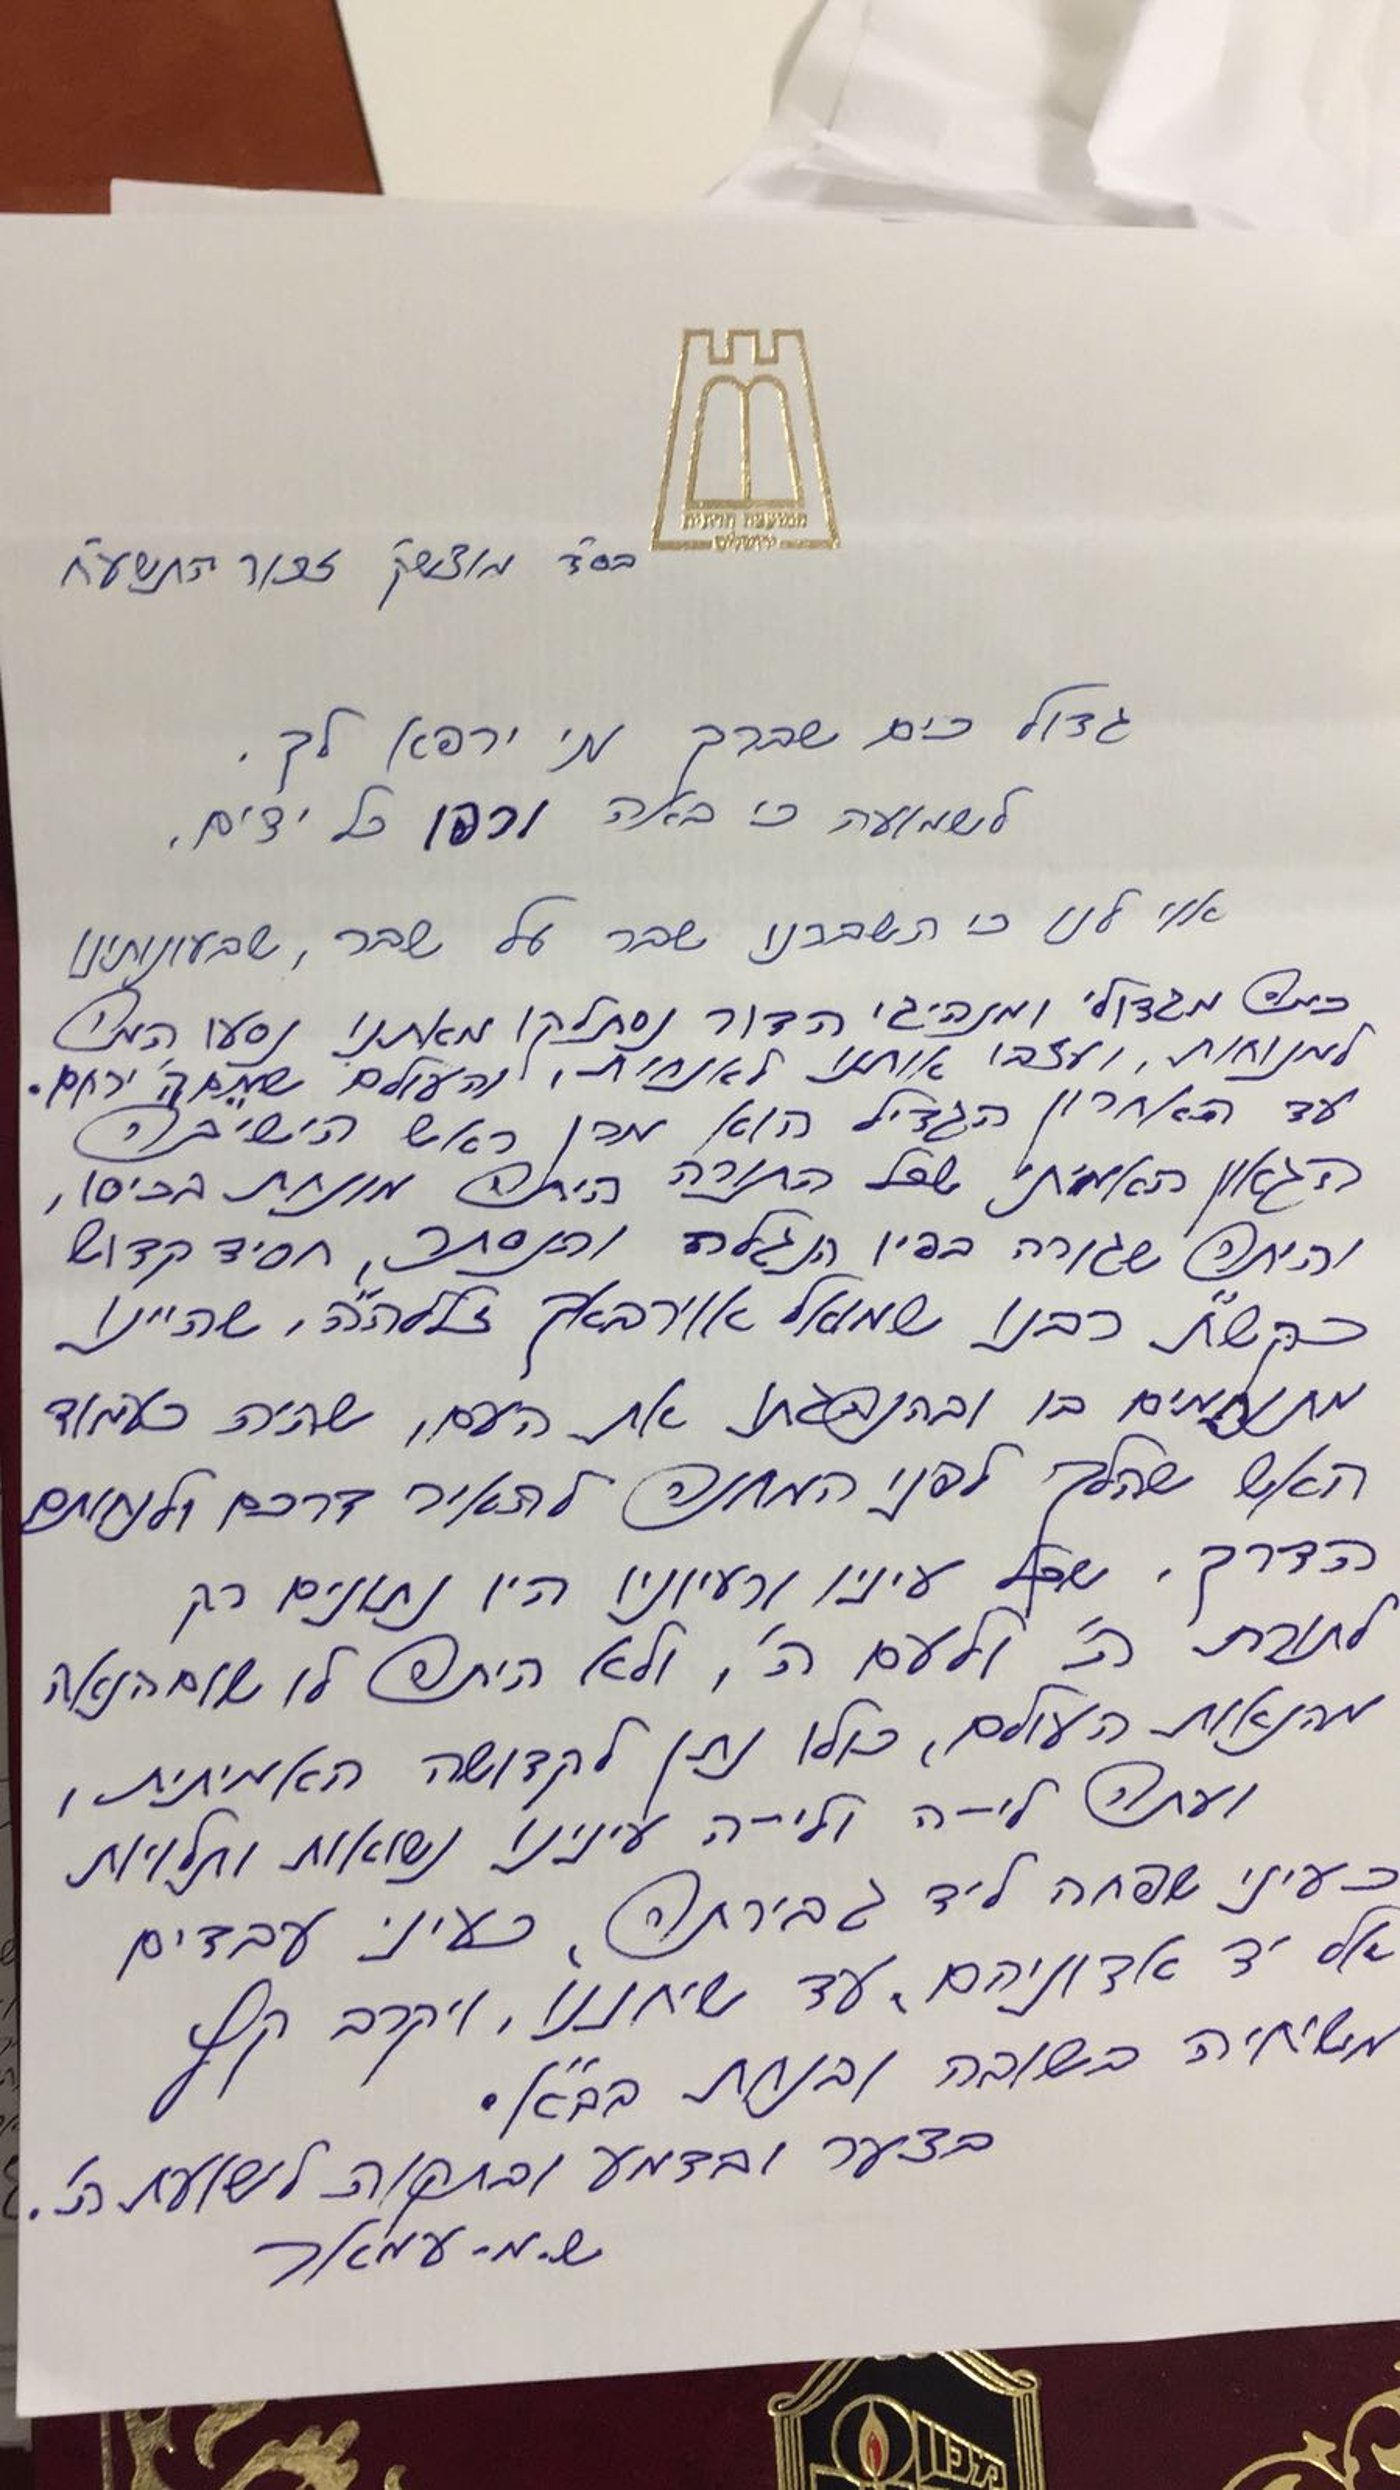 מועצה דתית
ירושלים
בס"ד מוצש"ק זכור התשע"ח
גדול כים שברך מי ירפא לך.
לשמועה כי באה ורפו כל ידים.
אוי לנו כי השברנו שבר על שבר, שבעונותינו
כמה מגדולי ומנהיגי הדור נסתלקו מאתנו נסעו המה
למנוחות, ועזבו אותנו לאנחות, והעולם שמם ה' ירחם.
עד האחרון הגדיל הוא מרן ראש הישיבה
הגאון האמיתי שכל התורה היתה מונחת בכיסו,
והיתה שגורה בפיו הנגלה והנסתר, חסיד קדוש
כקש"ת רבנו שמואל אוירבאך זצללה"ה, שהיינו
מתנחמים בו ובהנהגתו את העם, שהיה כעמוד
האש שהלך לפני המחנה להאיר דרכם ולנחותם
הדרך. שכל עיניו ורעיוניו היו נתונים רק
לתורת ה' ולעם ה', ולא היתה לו שום הנאה
מהנאות העולם, כולו נתן לקדושה האמיתית,
ועתה לי-ה ולי-ה עינינו נשואות ותלויות
כעיני שפחה ליד גבירתה, כעיני עבדים
אל יד אדוניהם, עד שיחננו, ויקרב קץ
משיחיה בשובה ובנחת בב"א.
בצער ובדמע ובתקוה לישועת ה'.
ש.מ. עמאר